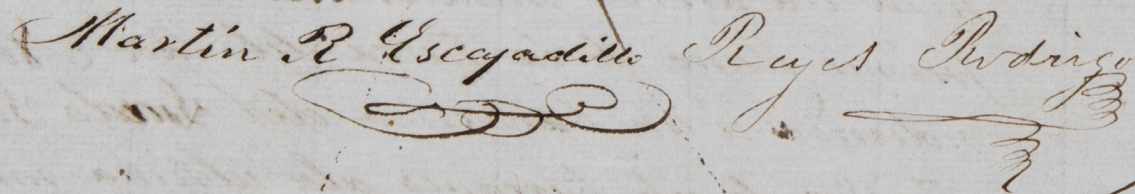 Martin R Escajadillo Reyes Rodrigo